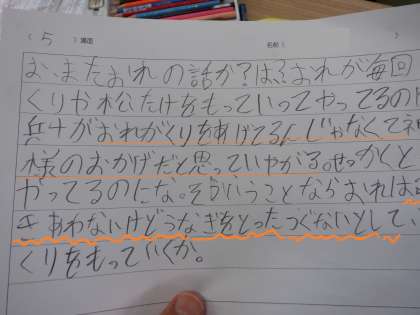 （ 5 ）場面 名前（ ）
お、またおれの話か？はぁ、おれが毎回
くりや松たけをもっていってやってるの
兵十がおれがくりをあげてるんじゃなくて
様のおかげだと思っていやがる。せっかくと
やってるのにな。そういうことならおれは
あわないけどうなぎをとったつぐないとして、
くりをもっていくか。